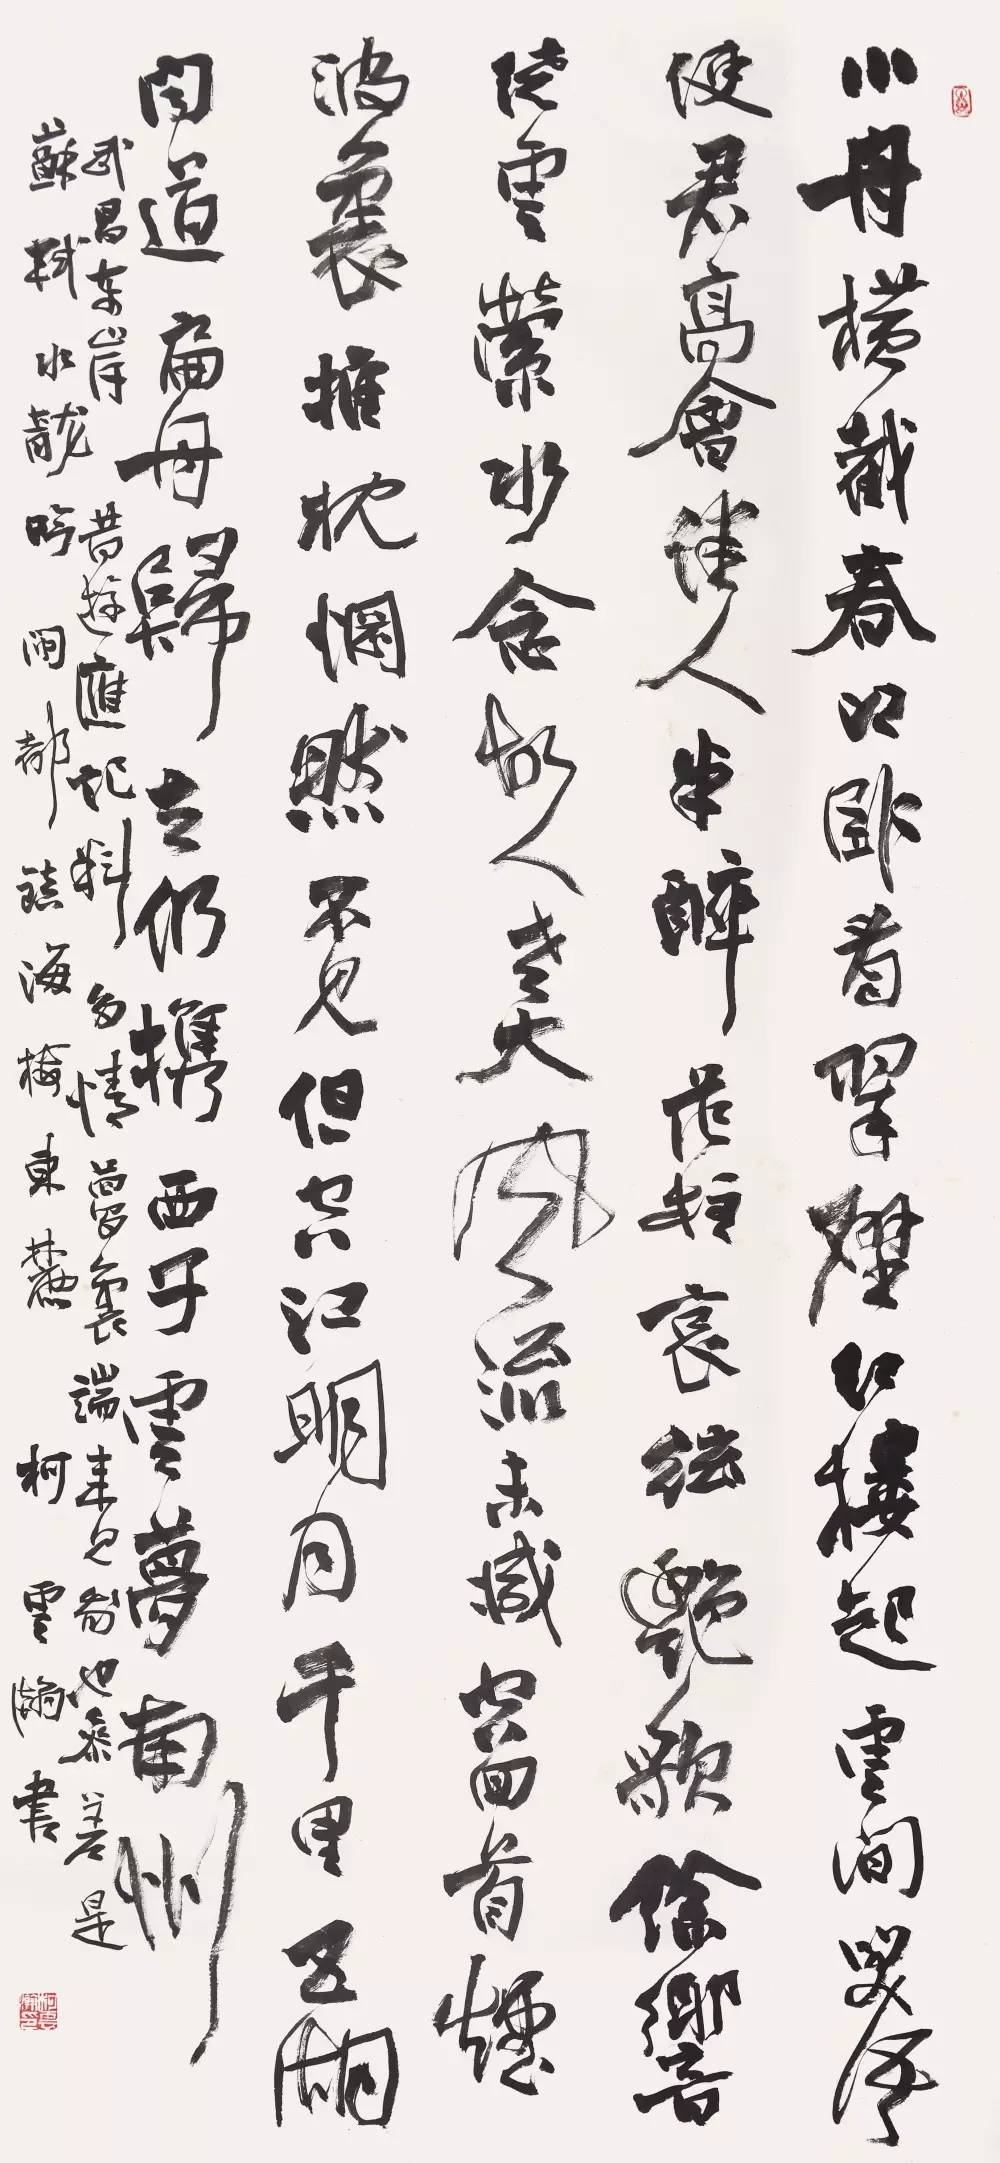 小舟橫截春江臥看翠壁紅樓起雲間笑語
使君高會佳人半醉危柱哀絃艷歌餘響
繞雲縈水念故人老大風流未減空回首煙
波裏推枕惘然不見但空江明月千里五湖
聞道扁舟歸去仍攜西子雲夢南州
武昌东岸昔遊應記料多情夢裏端來見我也參差是
蘇軾水龍吟 閩都鎮海樓東麓 柯雲瀚書
柯雲瀚印